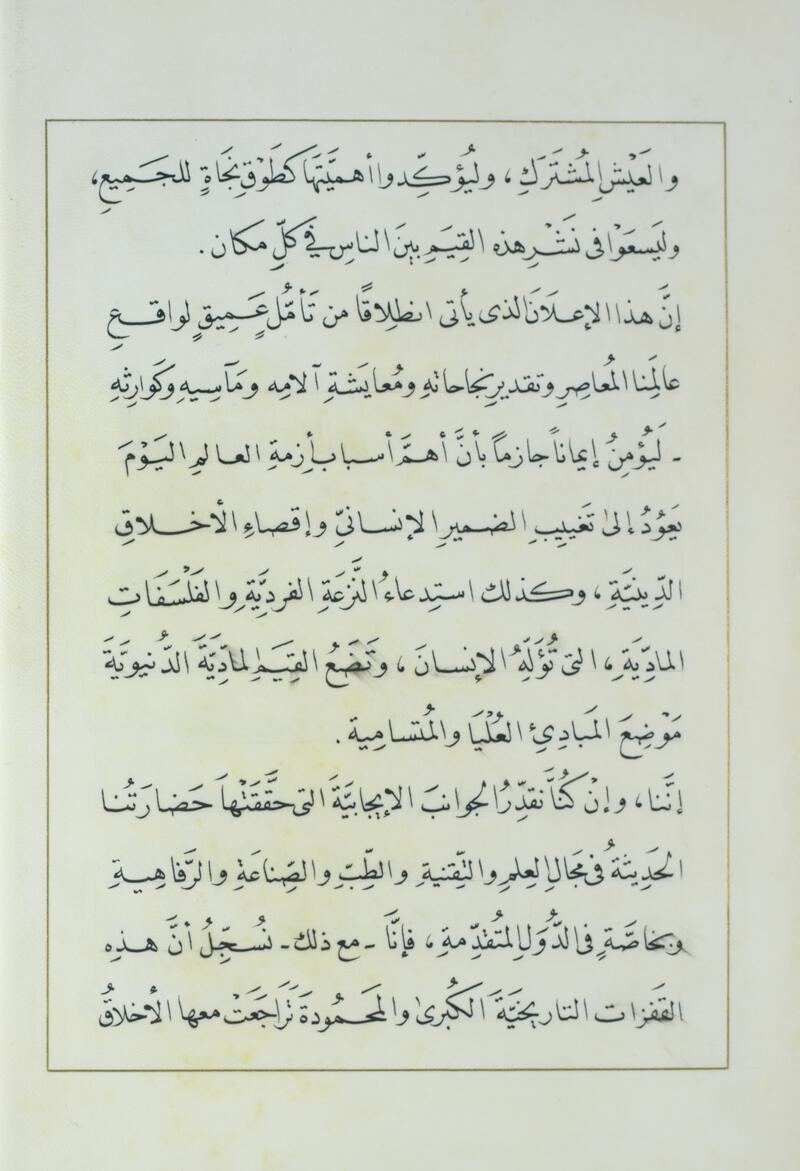 والعَيْشِ المُشْتَرَكِ، وليُؤكِّدوا أهميَّتَهَا كَطَوْقِ نَجَاةٍ للجَميعِ،
وليَسعَوْا فى نَشْرِ هذه القِيَمِ بينَ الناسِ في كلِّ مكان.
إنَّ هذا الإعلَانَ الذى يأتى انطِلاقًا من تَأمُّلٍ عَمِيقٍ لواقعِ
عالَمِنا المُعاصِرِ وتقديرِ نجاحاتِهِ ومُعايَشةِ آلامِه ومَآسِيهِ وكَوارِثِهِ
- لَيُؤمِنُ إيماناً جازماً بأنَّ أهمَّ أسبابِ أزمةِ العالمِ اليَوْمَ
يَعُوْدُ إلىٰ تَغييبِ الضميرِ الإنسانيِّ وإقصاءِ الأخلاقِ
الدِّينيَّةِ، وكذلك استِدعاءُ النَّزعَةِ الفرديَّةِ والفَلْسَفَاتِ
المادِّيَةِ، التى تُؤَلِّهُ الإنسانَ، وتَضَعُ القِيَمَ المادِّيَّةَ الدُّنيويَّةَ
مَوْضِعَ المَبادِئِ العُلْيَا والمُتسامِية.
إنَّنا، وإنْ كُنَّا نقدِّرُ الجوانبَ الإيجابيَّةَ التى حقَّقَتْها حَضارَتُنا
الحَدِيثةُ فى مَجالِ العِلمِ والتِّقنيةِ والطِّبِّ والصِّناعَةِ والرَّفاهِيةِ
وبخاصَّةٍ فى الدُّوَلِ المُتقدِّمةِ، فإنَّا - مع ذلك - نُسجِّلُ أنَّ هذِه
القَفزات التاريخيَّةَ الكُبرىٰ والمَحمُودةَ تَراجَعَتْ معها الأخلاقُ